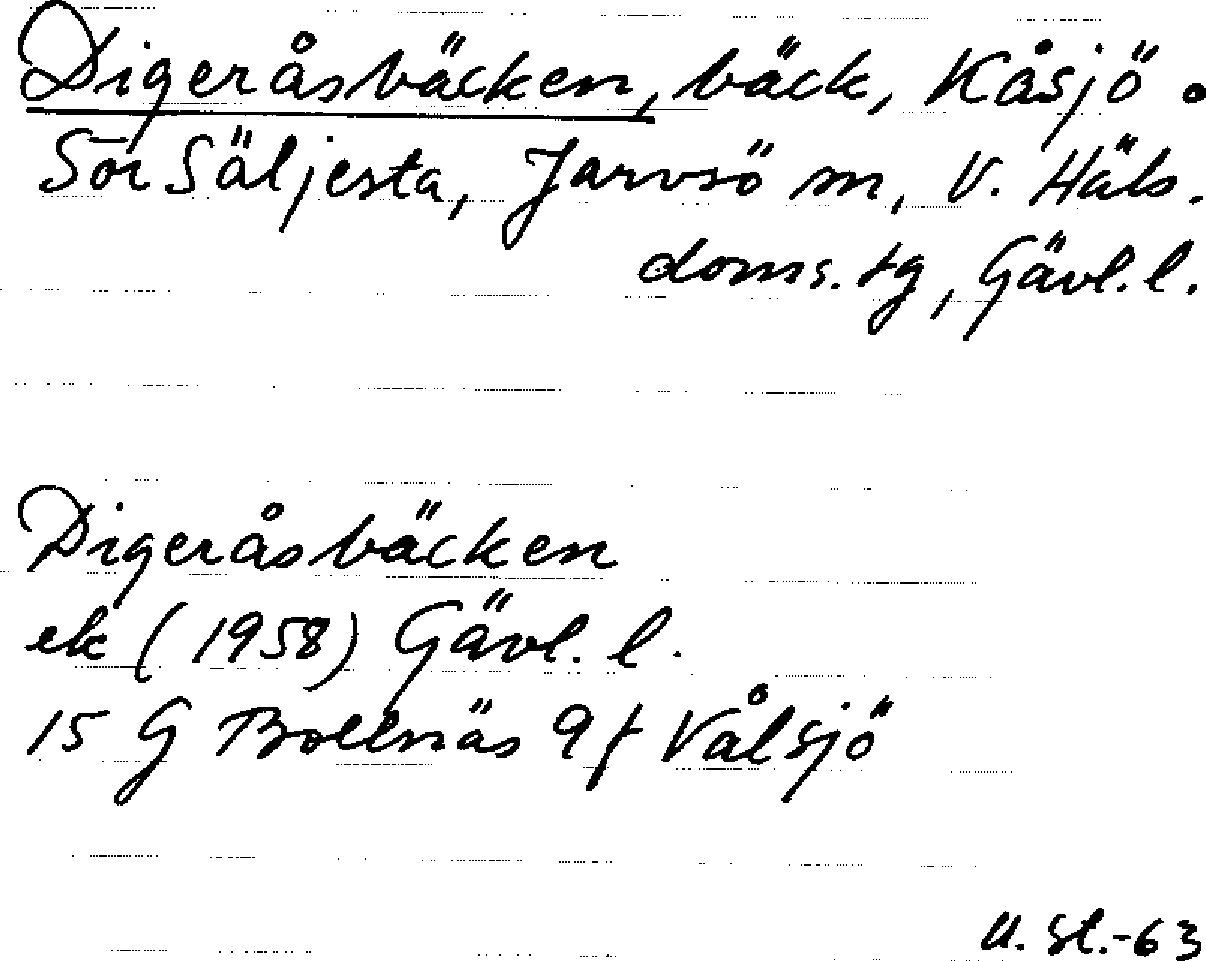 Digeråsbäcken, bäck, Kåsjö o
Sör Säljesta, Jarvsö sn, V. Häls.
doms. tg, Gävl. l.
Digeråsbäcken
ek (1958) Gävl. l.
15 G Bollnäs 9f Vålsjö
U. St.-63